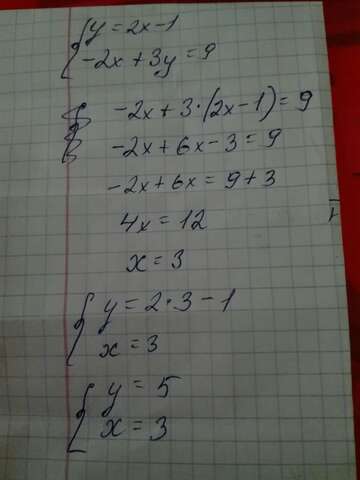 y = 2x - 1
-2x + 3y = 9
-2x + 3·(2x-1) = 9
-2x + 6x - 3 = 9
-2x + 6x = 9 + 3
4x = 12
x = 3
y = 2·3 - 1
x = 3
y = 5
x = 3